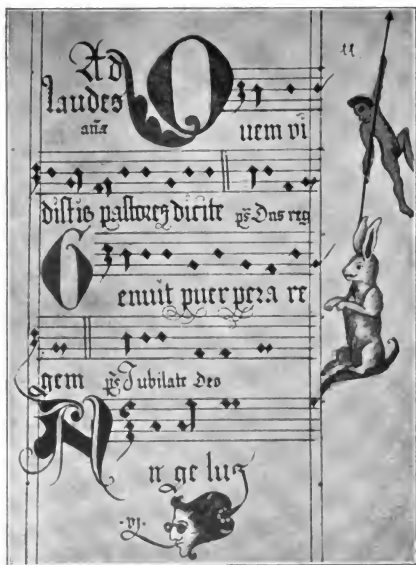 Ad
laudes
añæ Quem vi
distis pastores dicite ps̃ Dns reg
Genuit puer pera re
gem ps̃ Jubilate Deo
An ge lus
·vj·